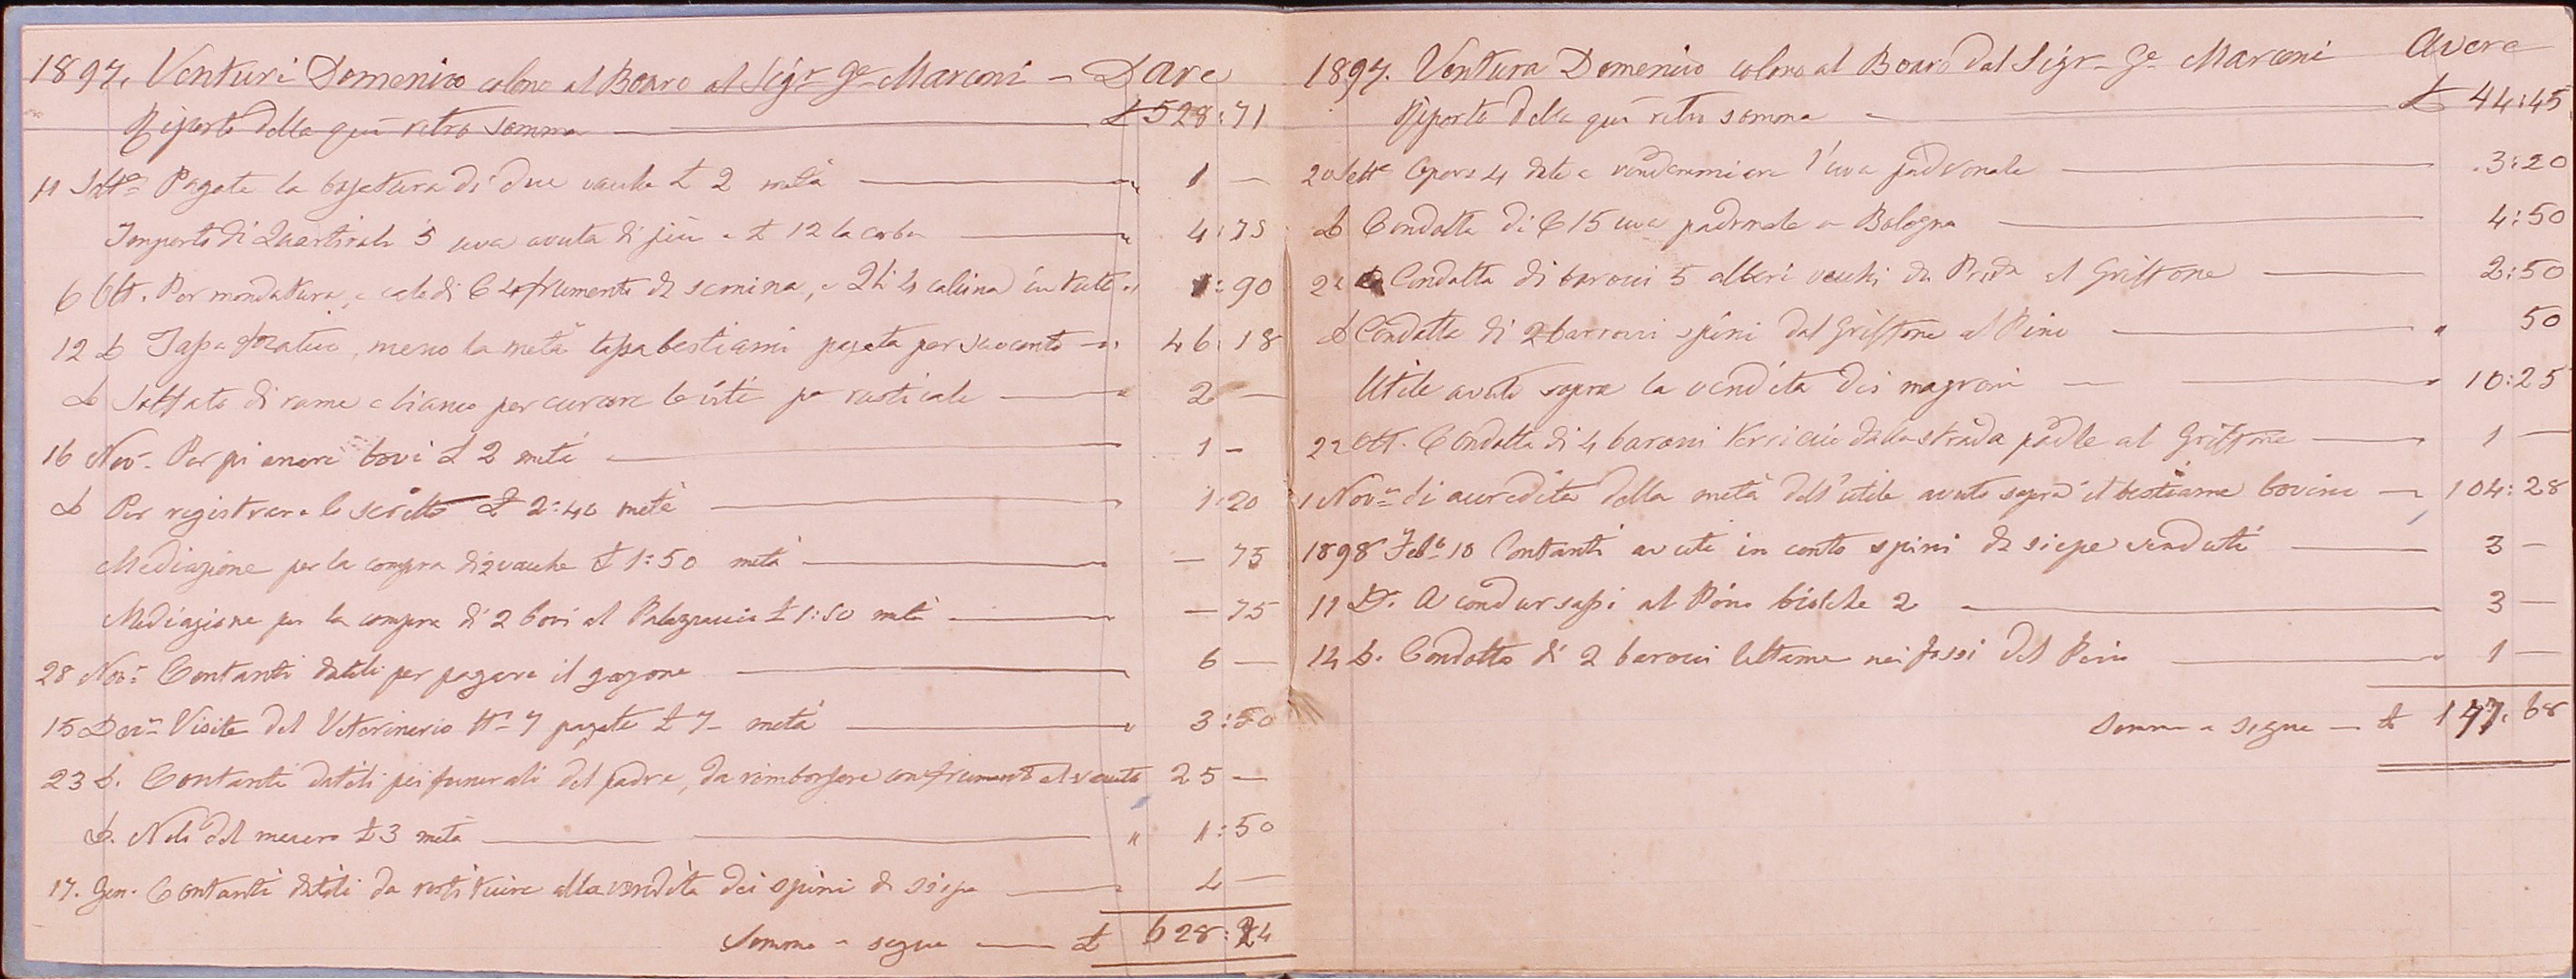 1897. Venturi Domenico colono al Boaro al Sigr Ge Marconi — Dare
Riporto della qui retro somma — £ 528:71
11 Sette Pagate la bojatura di due vacche £ 2 metà — " 1 —
Importo di Quartirole 5 uva avuta di più a £ 12 la corba — " 4:75
6 Ott. Per mondatura, e cale di C 4 frumento da semina, e calcina in tutto " 1:90
12 D Tassa, meno la metà tassa bestiami pagata per suo conto — " 46:18
D Solfato di rame e bianco per curare le viti — " 2 —
16 Nov. Per bovi £ 2 metà — 1 —
D Per registrare le scritte £ 2:40 metà — 1:20
Mediazione per la compra di 2 vacche £ 1:50 metà — — 75
Mediazione per la compra di 2 bovi al Palazzaccio £ 1:50 metà — — 75
28 Nov. Contanti datili per pagare il garzone — 6 —
15 Dec. Visite del Veterinario N. 7 pagate £ 7 — metà — " 3:50
23 D. Contanti datili pei funerali del padre, da rimborsare con frumento 25 —
D. Nolo del £ 3 metà — " 1:50
17. Gen. Contanti datili da restituire alla vendita dei spini di siepe — " 4 —
Somma e segue — £ 628:24
1897. Ventura Domenico colono al Boaro dal Sigr Ge Marconi Avere
Riporto della qui retro somma — £ 44:45
20 Sette Opere 4 date a vendemmiare l'uva padronale — 3:20
D Condotta di C 15 uva padronale a Bologna — 4:50
22 D Condotta di barocci 5 alberi vecchi da Prada al Griffone — 2:50
D Condotta di 2 barrocci spini dal Griffone al Pino — " 50
Utile avuto sopra la vendita dei magroni — " 10:25
22 Ott. Condotta di 4 barocci terriccio dalla strada padle al Griffone — " 1 —
1 Nov. di accredito della metà dell'utile avuto sopra il bestiame bovino — " 104:28
1898 Feb. 10 Contanti avuti in conto spini da siepe venduti — 3 —
11 D. A condur sassi al Pino biolche 2 — 3 —
14 D. Condotta di 2 barocci lettame nei fossi del Pino — " 1 —
Somma e segue — £ 177:68